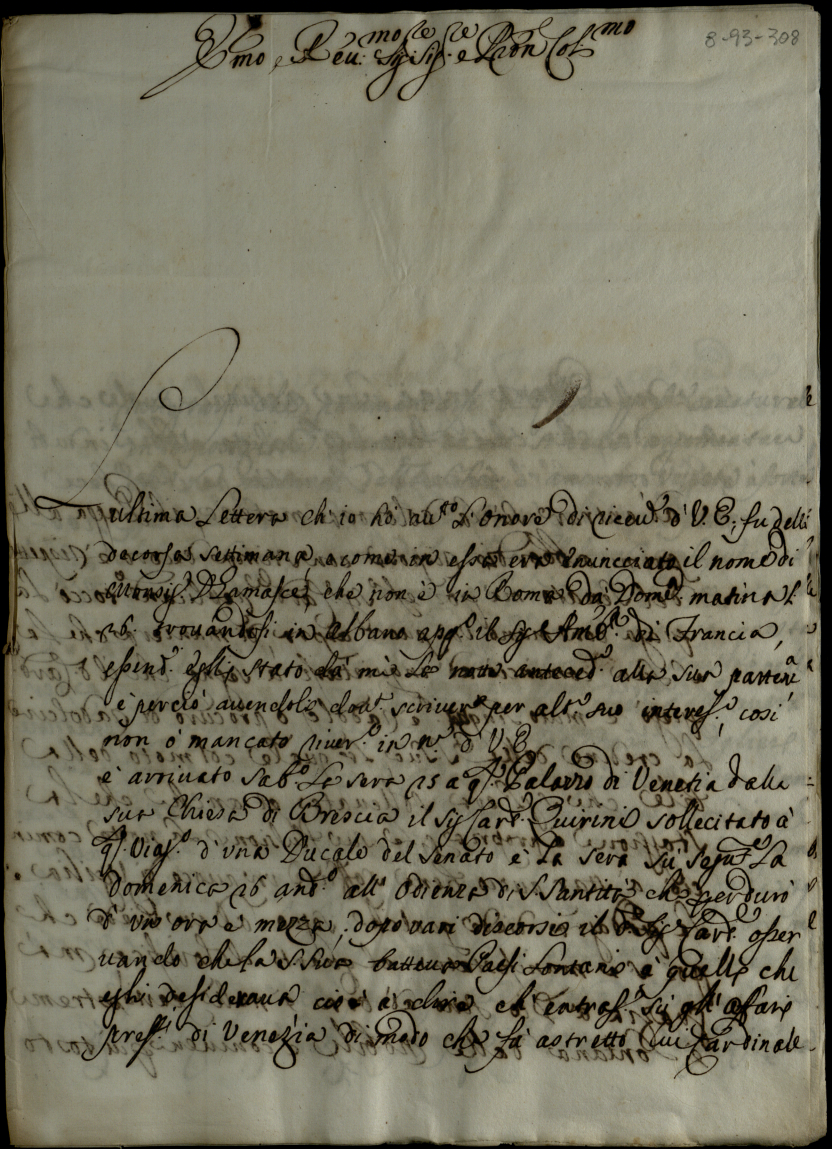 8-93-308
Emo e Reu: mo Sigr Sigr e Pron Colmo
L'ultima Lettera ch'io hò aut.o L'Onore di riceu.e d'V.E. fu della
decorsa settimana, e come in essa era enunciato il nome di
Monsig.r Damasce, che non è in Roma da Dom.ca matina L
26. trouandosi in Albano app.o il Sig.r Amb.re di Francia,
essend.o egli stato da me la notte anteced.e alla sua partenza
e perciò auendoli dout.o scriuere per alt.o suo interes.e, così
non ò mancato riuer.o in n.e d'V.E.
è arriuato Sab.o La sera 15 a q.o Palazzo di Venetia dalla
sua Chiesa di Brescia il Sig.r Card.l Quirini sollecitato à
q.o Viag.o d'una Ducale del Senato e La sera su segu.te La
domenica 16 and.o all'Odienza di S. Santità che perdurò
d'un ora e mezza, dopo vari discorsi il Sig.r Card.l osser
uando che La S. Sua batteua Paesi Lontani à quelli che
egli desideraua cioè à udire et entrass.e sù gl'affari
press.ti di Venezia di modo che fà astretto lui Cardinale